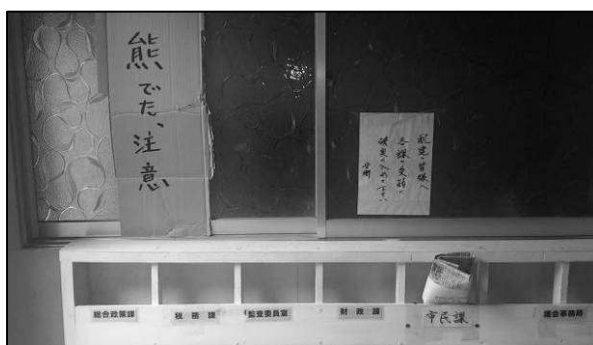 熊でた、注意
各課の受箱に
総合政策課
税務課
監査委員室
財政課
市民課
議会事務局